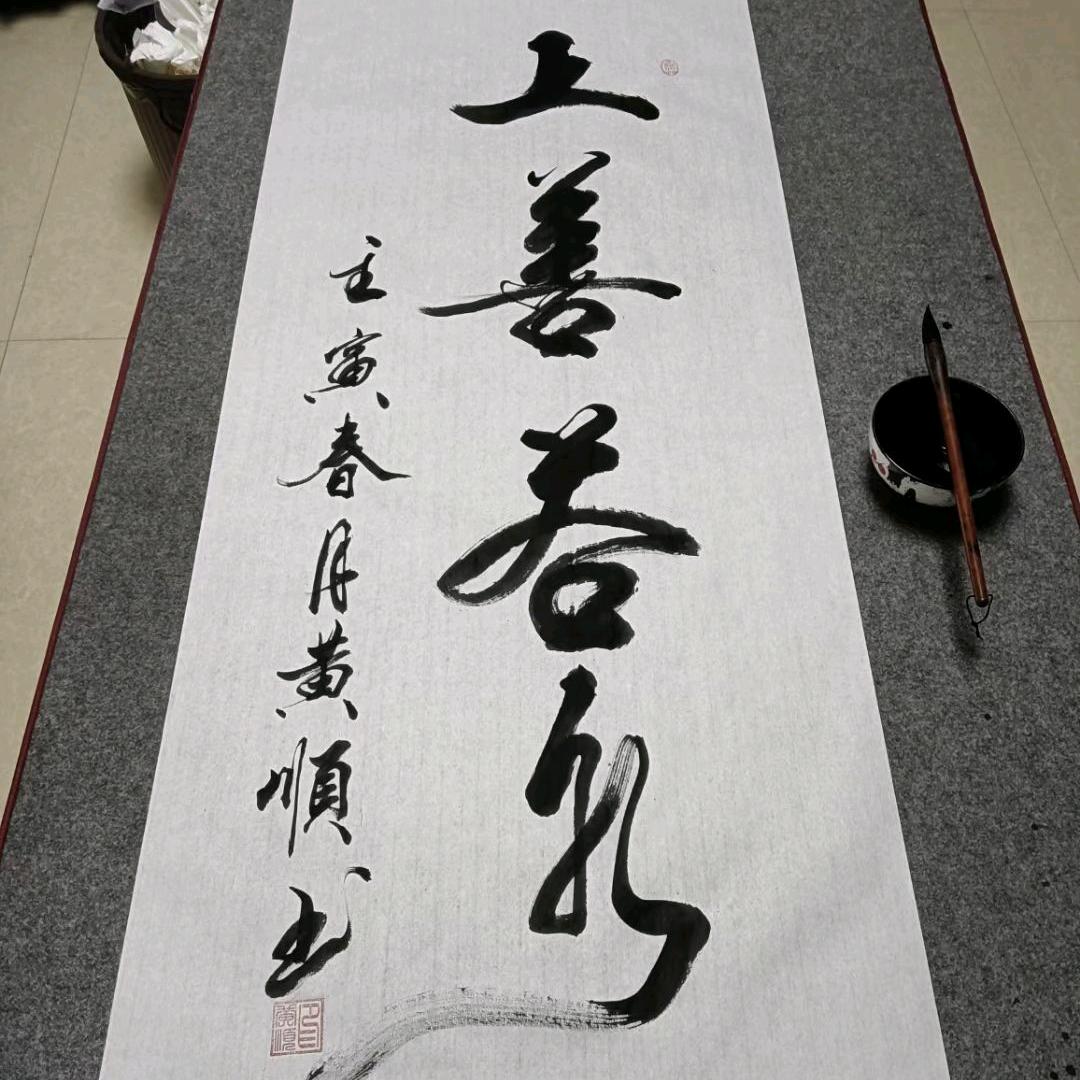 上善若水
壬寅春月黄順书